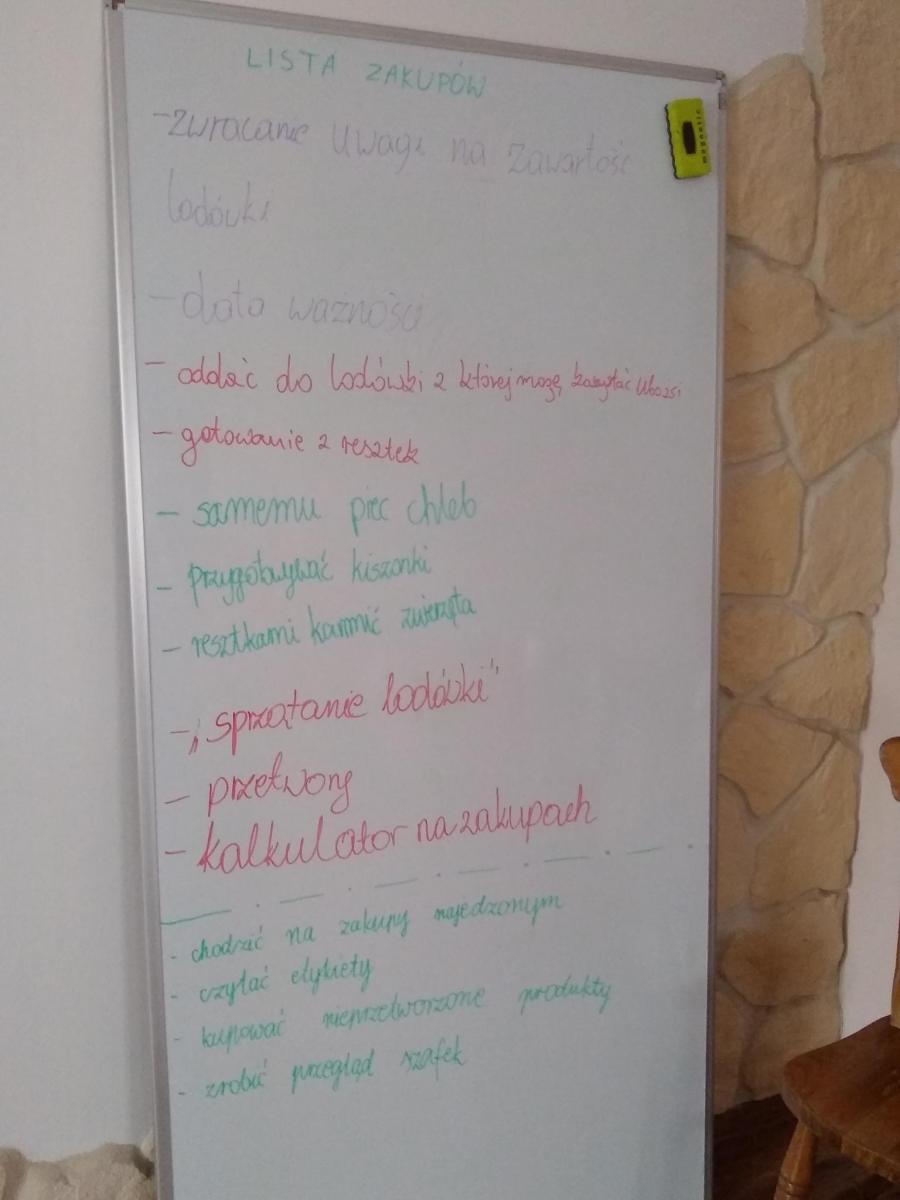 LISTA ZAKUPÓW
magnetic
- zwracanie uwagi na zawartość
lodówki
- data ważności
- oddać do lodówki z której mogą korzystać ubożsi
- gotowanie z resztek
- samemu piec chleb
- przygotowywać kiszonki
- resztkami karmić zwierzęta
- „sprzątanie lodówki”
- przetwory
- kalkulator na zakupach
- chodzić na zakupy najedzonym
- czytać etykiety
- kupować nieprzetworzone produkty
- zrobić przegląd szafek